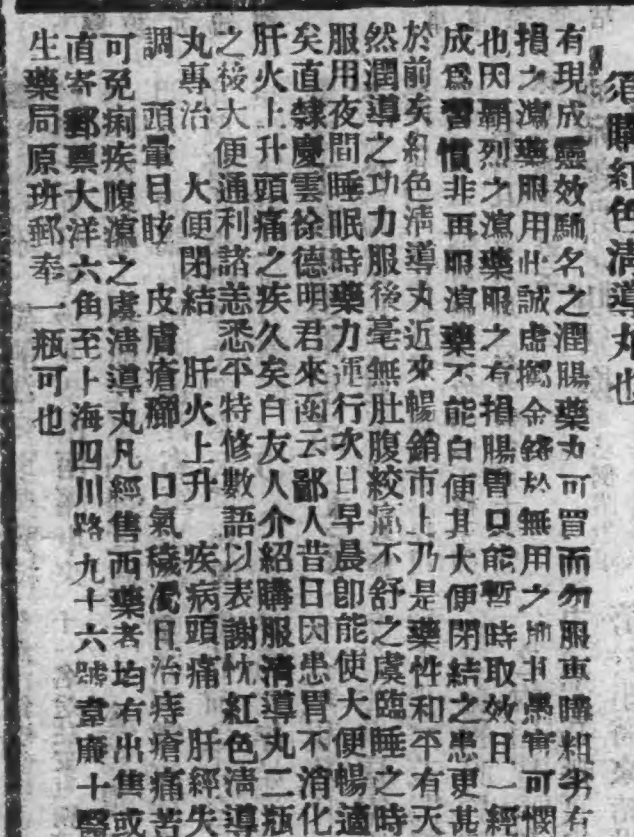 須購紅色清導丸也
有現成靈效馳名之潤腸藥丸可買而勿服重瀉粗劣有
損之瀉藥服用此誠虛擲金錢於無用之地其愚實可憫
也因霸烈之瀉藥服之有損腸胃只能暫時取效且一經
成爲習慣非再服瀉藥不能自便其大便閉結之患更甚
於前矣紅色淸導丸近來暢銷市上乃是藥性和平有天
然潤導之功力服後毫無肚腹絞痛不舒之虞臨睡之時
服用夜間睡眠時藥力運行次日早晨卽能使大便暢適
矣直隸慶雲徐德明君來函云鄙人昔日因患胃不消化
肝火上升頭痛之疾久矣自友人介紹購服淸導丸二瓶
之後大便通利諸恙悉平特修數語以表謝忱紅色淸導
丸專治 大便閉結 肝火上升 疾病頭痛 肝經失
調 頭暈目眩 皮膚瘡癤 口氣穢濁且治痔瘡痛苦
可免痢疾腹瀉之虞淸導丸凡經售西藥者均有出售或
直寄郵票大洋六角至上海四川路九十六號韋廉士醫
生藥局原班郵奉一瓶可也